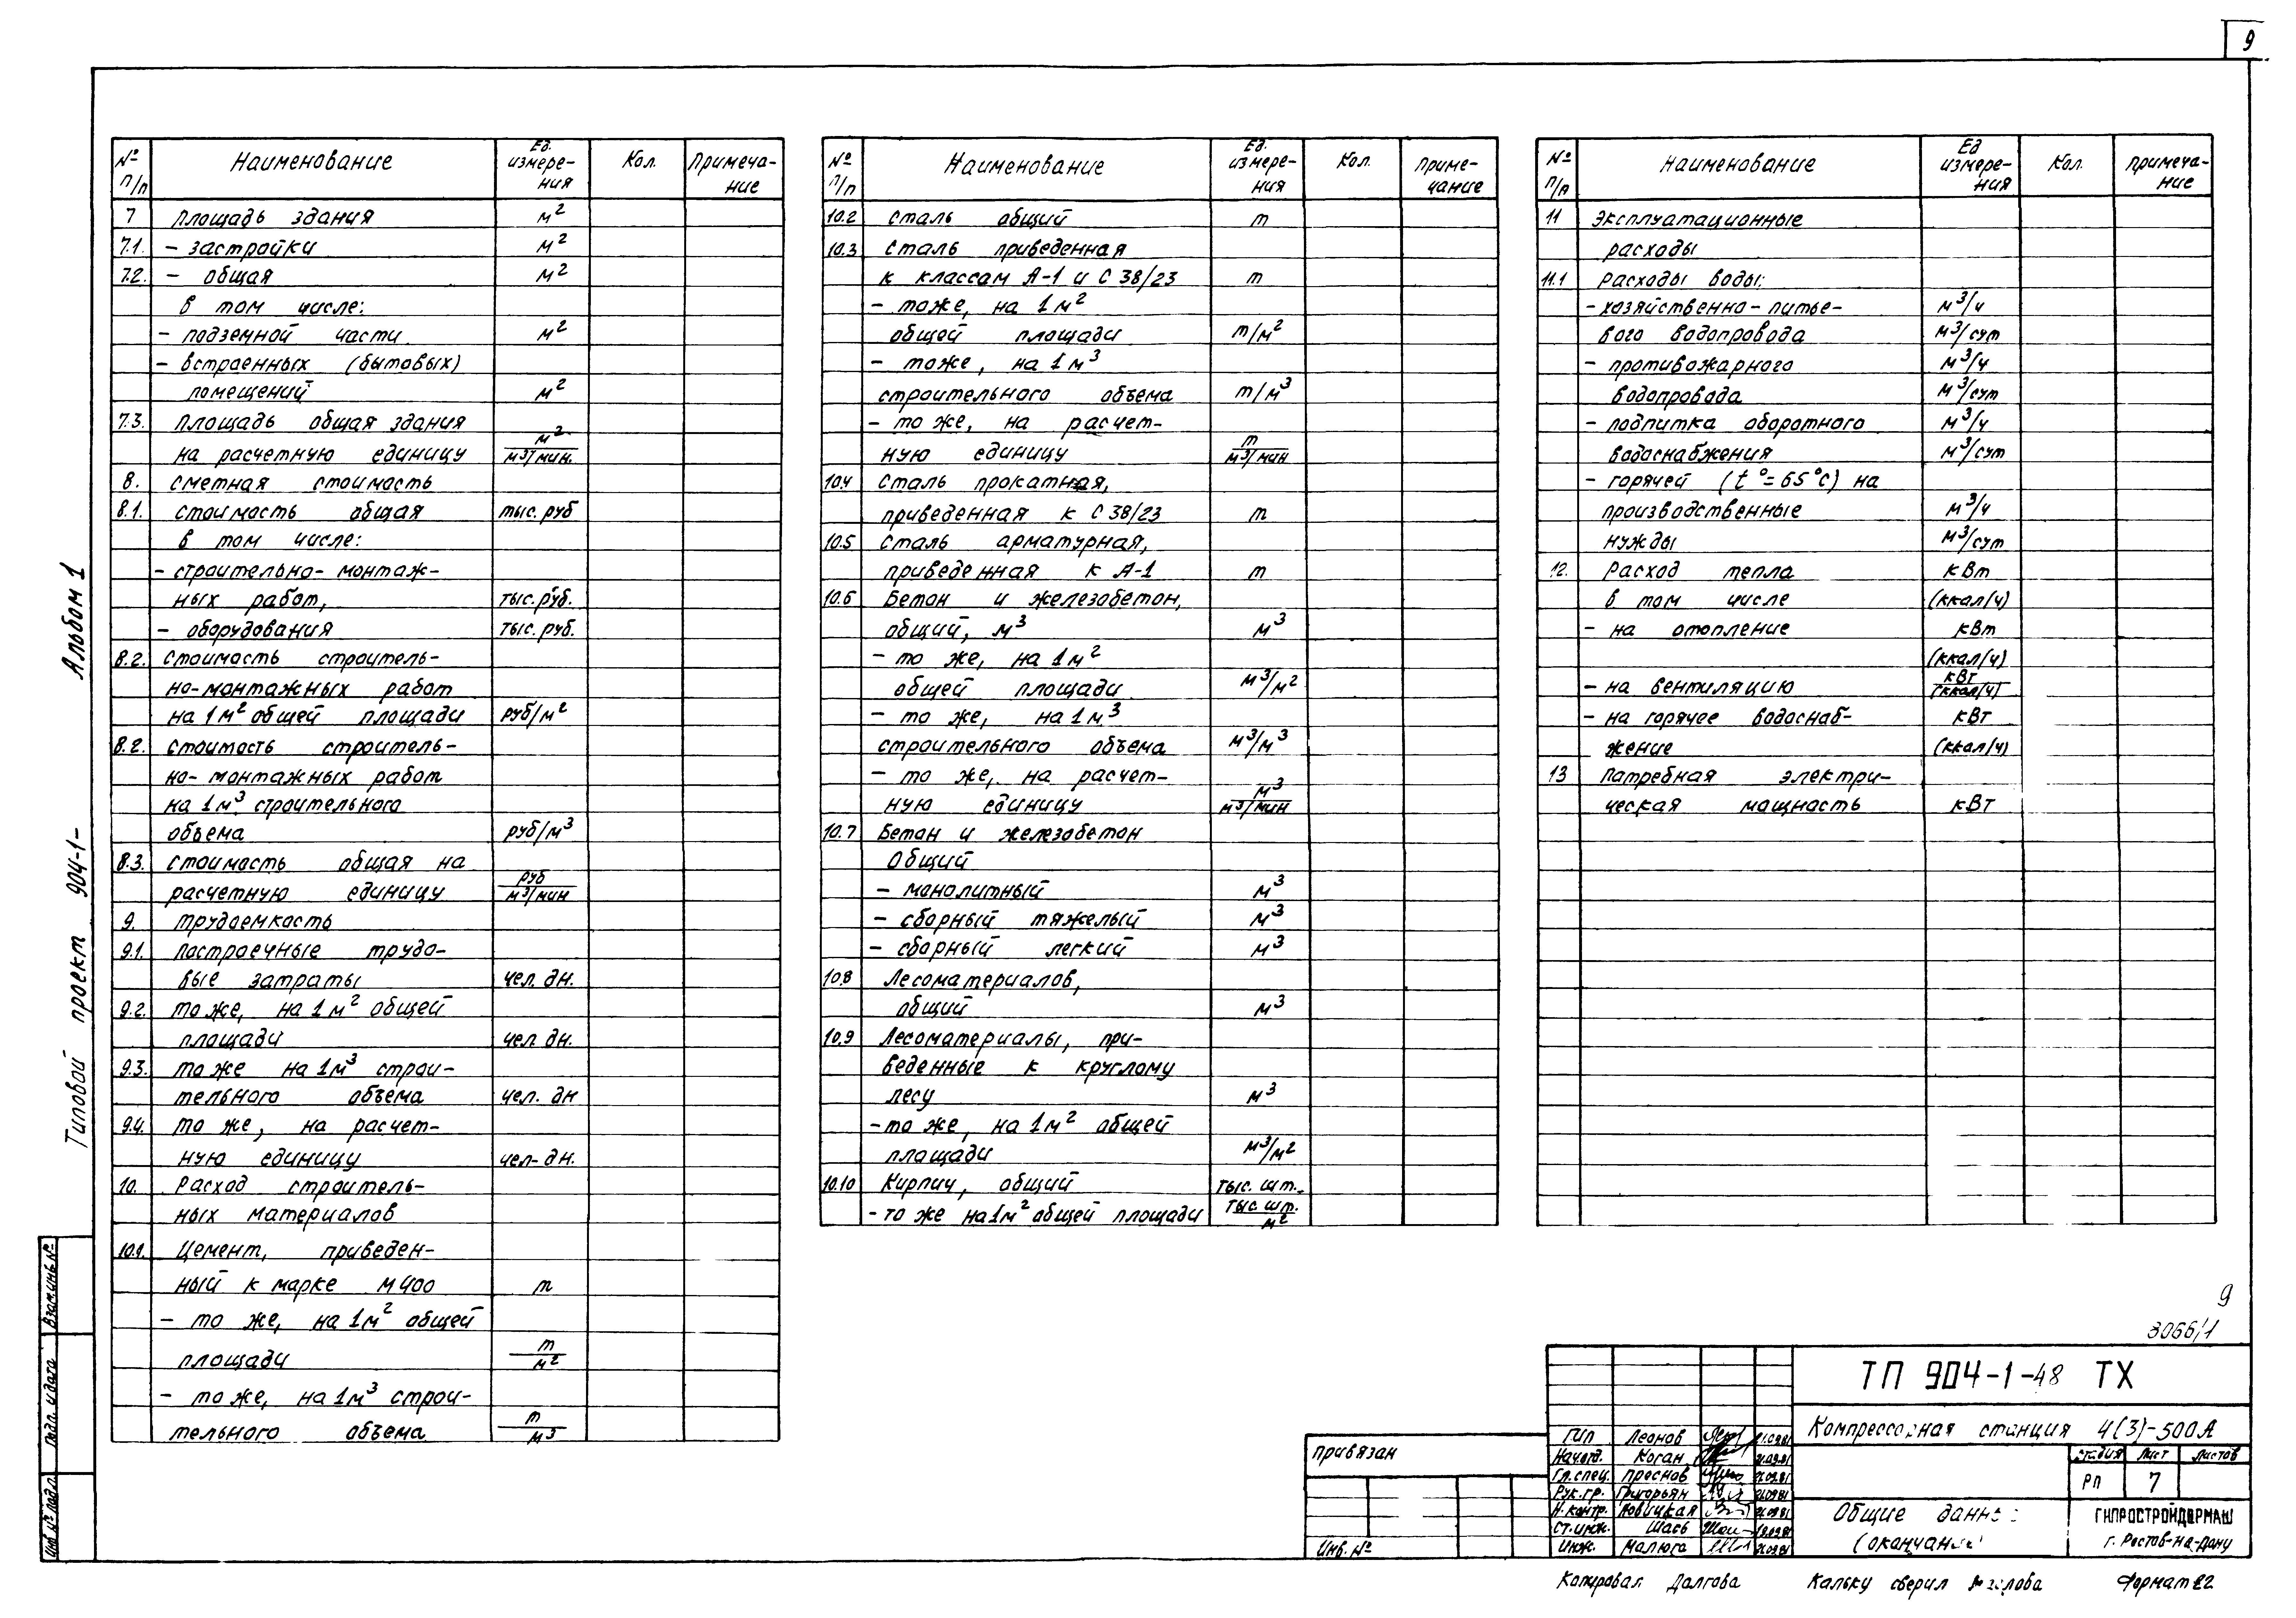 9
№ п/п Наименование Ед. измере-ния Кол. Примеча-ние
7 Площадь здания м²
7.1. – застройки м²
7.2. – общая м²
в том числе:
– подземной части м²
– встроенных (бытовых)
помещений м²
7.3. Площадь общая здания
на расчетную единицу м²/м³/мин.
8. Сметная стоимость
8.1. Стоимость общая тыс. руб
в том числе:
– строительно-монтаж-
ных работ, тыс. руб.
– оборудования тыс. руб.
8.2. Стоимость строитель-
но-монтажных работ
на 1м² общей площади руб/м²
8.2. Стоимость строитель-
но-монтажных работ
на 1м³ строительного
объема руб/м³
8.3. Стоимость общая на
расчетную единицу руб/м³/мин
9. Трудоемкость
9.1. Построечные трудо-
вые затраты чел. дн.
9.2. то же, на 1м² общей
площади чел дн.
9.3. то же на 1м³ строи-
тельного объема чел. дн
9.4. то же, на расчет-
ную единицу чел-дн.
10. Расход строитель-
ных материалов
10.1. Цемент, приведен-
ный к марке М400 т
– то же, на 1м² общей
площади т/м²
– то же, на 1м³ строи-
тельного объема т/м³
№ п/п Наименование Ед. измере-ния Кол. Приме-чание
10.2 Сталь общий т
10.3 Сталь приведенная
к классам А-1 и С 38/23 т
– тоже, на 1м²
общей площади т/м²
– тоже, на 1м³
строительного объема т/м³
– то же, на расчет-
ную единицу т/м³/мин
10.4 Сталь прокатная,
приведенная к С 38/23 т
10.5 Сталь арматурная,
приведенная к А-1 т
10.6 Бетон и железобетон,
общий, м³ м³
– то же, на 1м²
общей площади м³/м²
– то же, на 1м³
строительного объема м³/м³
– то же, на расчет-
ную единицу м³/м³/мин
10.7 Бетон и железобетон
Общий
– монолитный м³
– сборный тяжелый м³
– сборный легкий м³
10.8 Лесоматериалов,
общий м³
10.9 Лесоматериалы, при-
веденные к круглому
лесу м³
– то же, на 1м² общей
площади м³/м²
10.10 Кирпич, общий тыс. шт.
– то же на 1м² общей площади тыс. шт./м²
№ п/п Наименование Ед измере-ния Кол. Примеча-ние
11 Эксплуатационные
расходы
11.1 Расходы воды:
– хозяйственно-питье- м³/ч
вого водопровода м³/сут
– противожарного м³/ч
водопровода м³/сут
– подпитка оборотного м³/ч
водоснабжения м³/сут
– горячей (t°=65°С) на
производственные м³/ч
нужды м³/сут
12. Расход тепла кВт
в том числе (ккал/ч)
– на отопление кВт
(ккал/ч)
– на вентиляцию кВт/(ккал/ч)
– на горячее водоснаб- кВт
жение (ккал/ч)
13 Потребная электри-
ческая мощность кВт
Типовой проект 904-1- Альбом 1
Взам.инв.№
Подп. и дата
Инв.№ подл.
9
3066/1
ТП 904-1-48 ТХ
Компрессорная станция 4(3)-500А
Стадия Лист Листов
РП 7
Общие данные
(окончание)
ГИПРОСТРОЙДОРМАШ
г. Ростов-на-Дону
Привязан
Инв. №
ГИП Леонов 21.09.81
Нач.отд. Коган 21.09.81
Гл.спец. Преснов 21.09.81
Рук.гр. Григорьян 21.09.81
Н.контр. Новицкая 21.09.81
Ст.инж. Шась 18.09.81
Инж. Малюга 21.09.81
Копировал Долгова Кальку сверил Формат 22